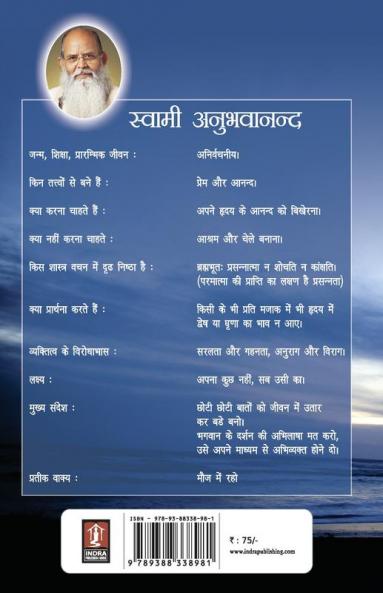 स्वामी अनुभवानन्द
जन्म, शिक्षा, प्रारम्भिक जीवन : अनिर्वचनीय।
किन तत्त्वों से बने हैं : प्रेम और आनन्द।
क्या करना चाहते हैं : अपने हृदय के आनन्द को बिखेरना।
क्या नहीं करना चाहते : आश्रम और चेले बनाना।
किस शास्त्र वचन में दृढ निष्ठा है : ब्रह्मभूतः प्रसन्नात्मा न शोचति न कांक्षति।
(परमात्मा की प्राप्ति का लक्षण है प्रसन्नता)
क्या प्रार्थना करते हैं : किसी के भी प्रति मजाक में भी हृदय में
द्वेष या घृणा का भाव न आए।
व्यक्तित्व के विरोधाभास : सरलता और गहनता, अनुराग और विराग।
लक्ष्य : अपना कुछ नहीं, सब उसी का।
मुख्य संदेश : छोटी छोटी बातों को जीवन में उतार
कर बडे बनो।
भगवान के दर्शन की अभिलाषा मत करो,
उसे अपने माध्यम से अभिव्यक्त होने दो।
प्रतीक वाक्य : मौज में रहो
ISBN - 978-93-88338-98-1
INDRA
PUBLISHING HOUSE
9 789388 338981
₹ : 75/-
www.indrapublishing.com